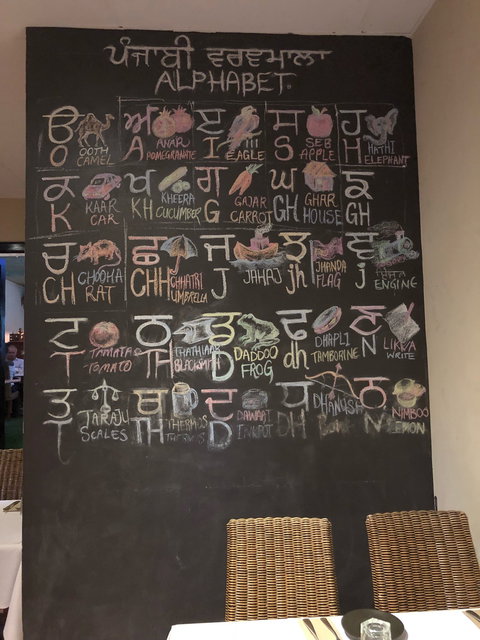 ਪੰਜਾਬੀ ਵਰਣਮਾਲਾ
ALPHABET.
ੳ ਅ ੲ ਸ ਹ
O OOTH CAMEL A ANAR POMEGRANATE I EAGLE S SEB APPLE H HATHI ELEPHANT
ਕ ਖ ਗ ਘ ਙ
K KAAR CAR KH KHEERA CUCUMBER G GAJAR CARROT GH GHAR HOUSE GH
ਚ ਛ ਜ ਝ ਞ
CH CHOOHA RAT CHH CHHATRI UMBRELLA J JAHAJ jh JHANDA FLAG j ENGINE
ਟ ਠ ਡ ਢ ਣ
T TAMATAR TOMATO TH THATHIAAR BLACKSMITH D DADDOO FROG dh DHAPLI TAMBORINE N LIKNA WRITE
ਤ ਥ ਦ ਧ ਨ
T TARAJU SCALES TH THERMOS THERMOS D DAWAAT INKPOT DH DHANUSH N NIMBOO LEMON